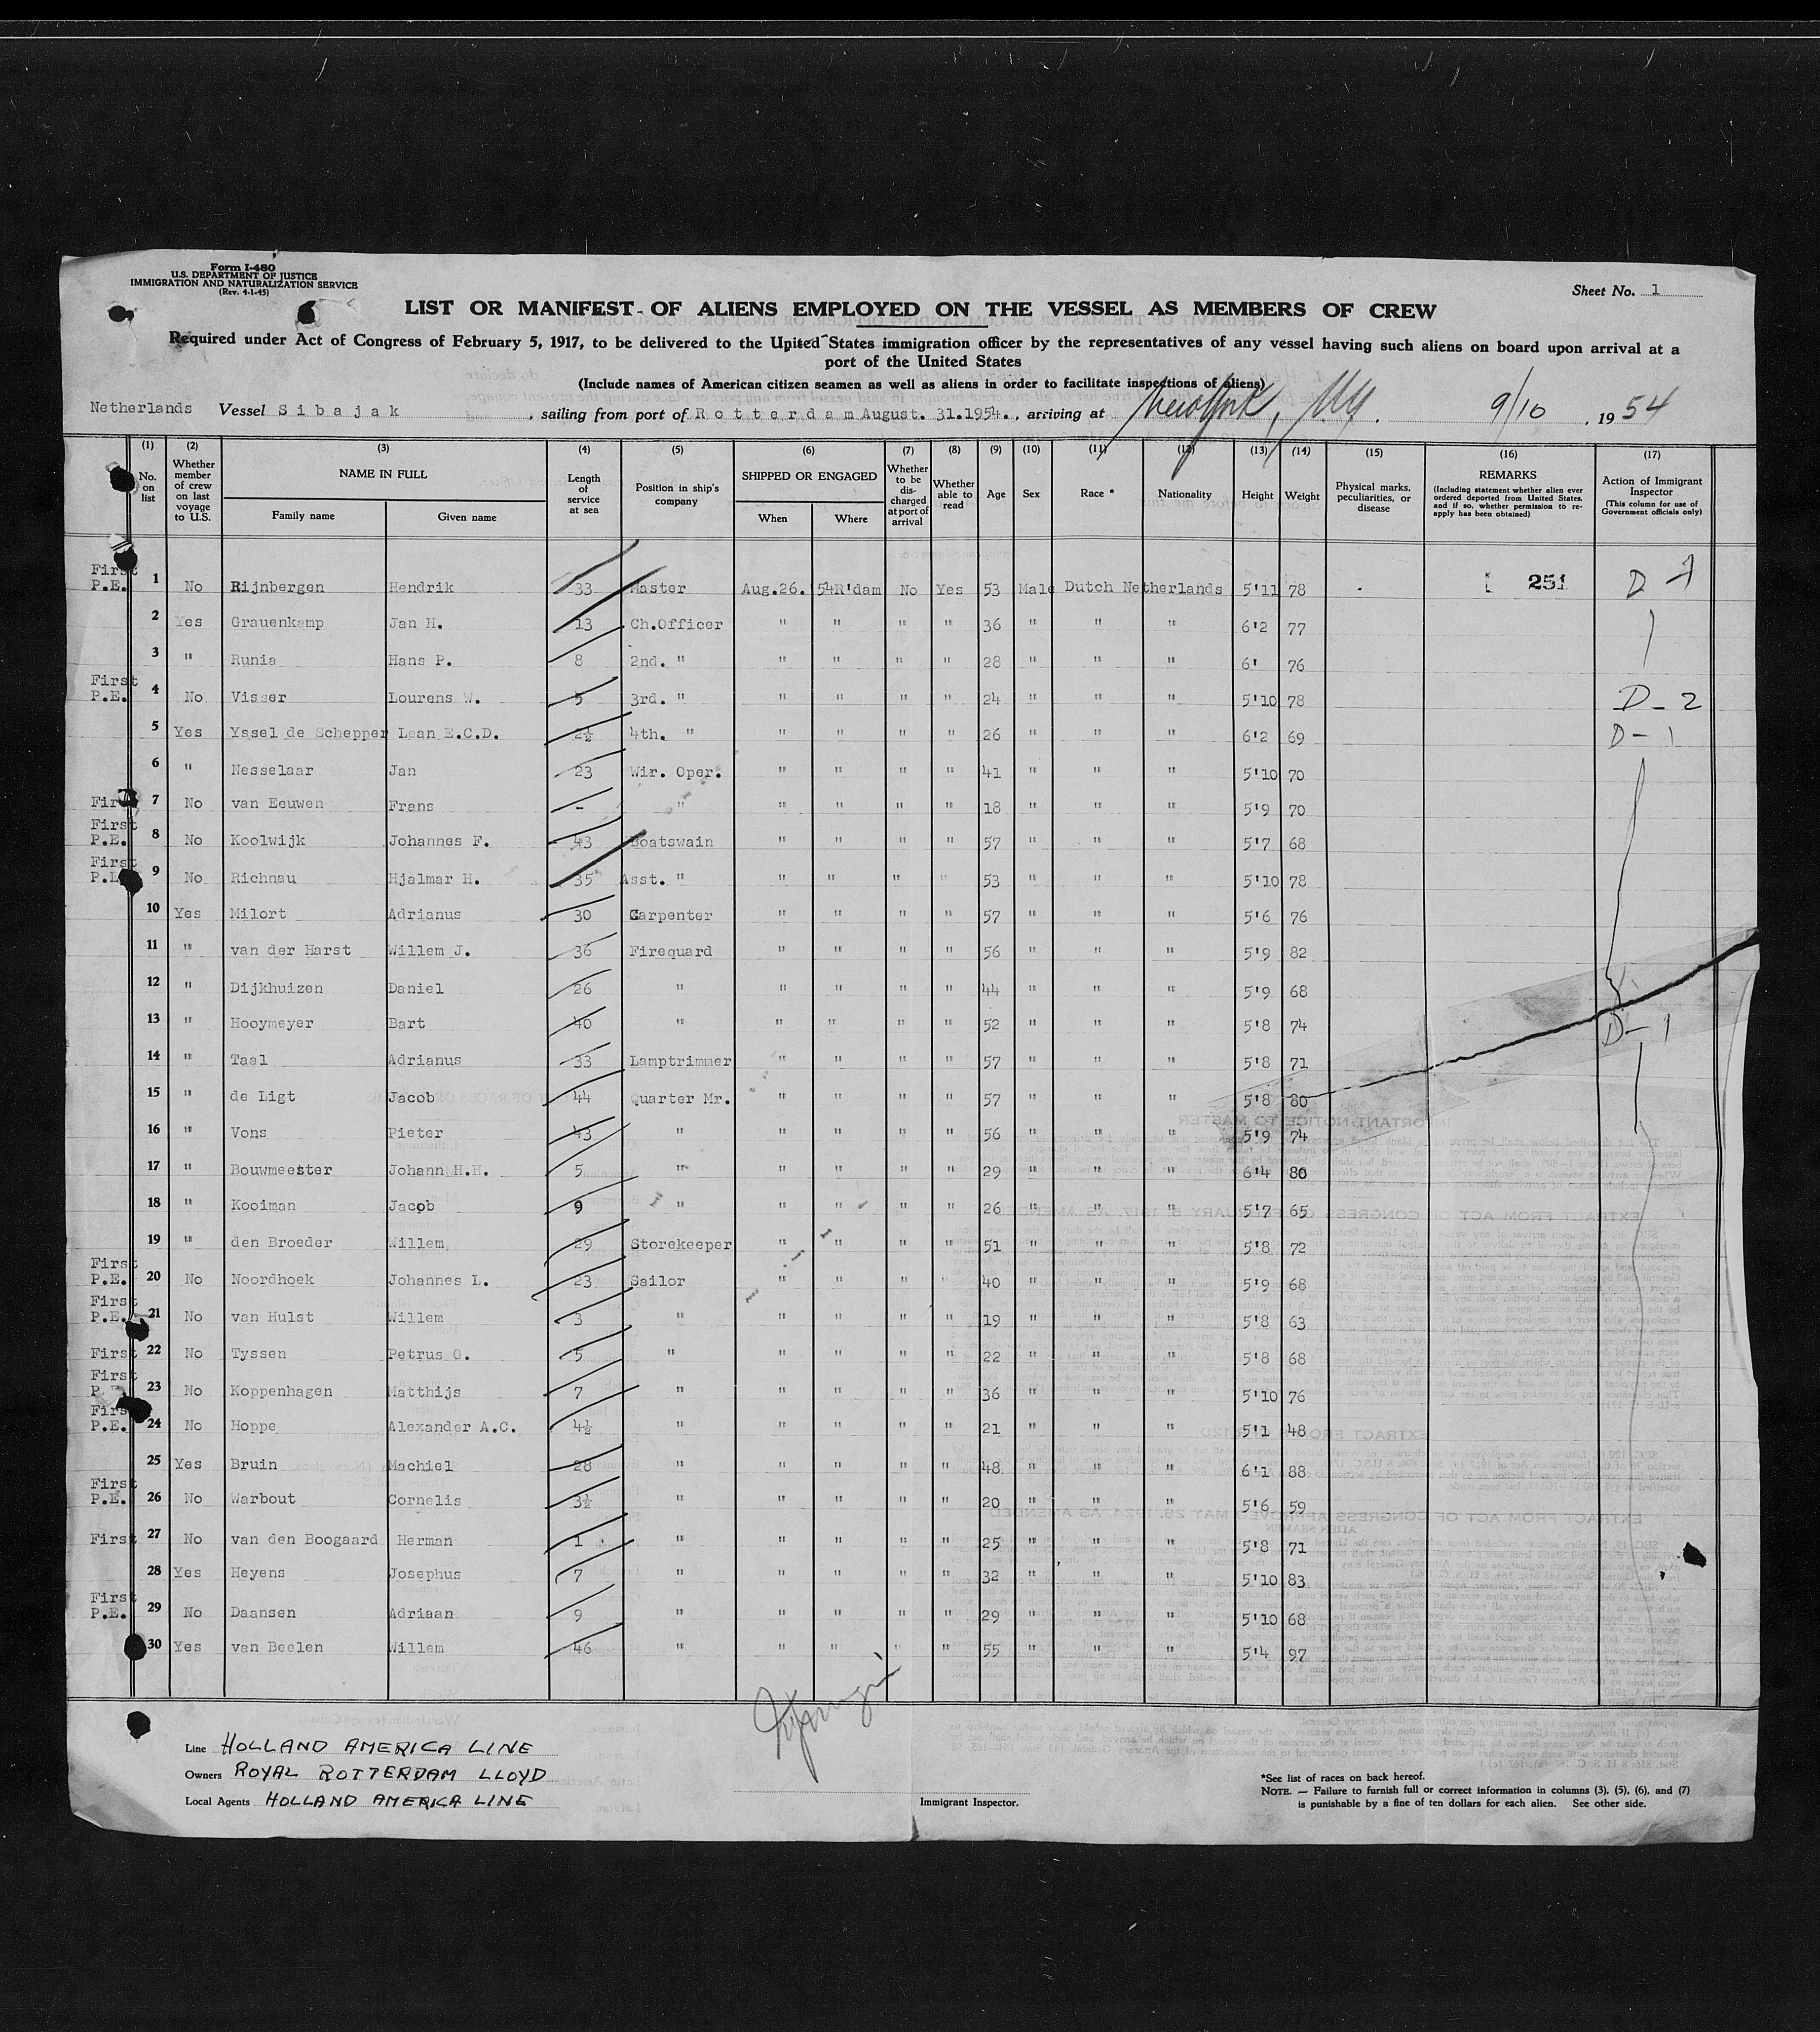 Form I-480
U.S. DEPARTMENT OF JUSTICE
IMMIGRATION AND NATURALIZATION SERVICE
(Rev. 4-1-45)
Sheet No. 1
LIST OR MANIFEST OF ALIENS EMPLOYED ON THE VESSEL AS MEMBERS OF CREW
Required under Act of Congress of February 5, 1917, to be delivered to the United States immigration officer by the representatives of any vessel having such aliens on board upon arrival at a
port of the United States
(Include names of American citizen seamen as well as aliens in order to facilitate inspections of aliens)
Netherlands Vessel Sibajak, sailing from port of Rotterdam August. 31.1954., arriving at New York, NY. 9/10, 1954
(1) (2) (3) (4) (5) (6) (7) (8) (9) (10) (11) (12) (13) (14) (15) (16) (17)
No. on list Whether member of crew on last voyage to U.S. NAME IN FULL Family name Given name Length of service at sea Position in ship's company SHIPPED OR ENGAGED When Where Whether to be discharged at port of arrival Whether able to read Age Sex Race * Nationality Height Weight Physical marks, peculiarities, or disease REMARKS (Including statement whether alien ever ordered deported from United States, and if so, whether permission to re-apply has been obtained) Action of Immigrant Inspector (This column for use of Government officials only)
First P.E. 1 No Rijnbergen Hendrik 33 Master Aug.26. '54 R'dam No Yes 53 Male Dutch Netherlands 5'11 78 251 D
2 Yes Grauenkamp Jan H. 13 Ch.Officer " " " " 36 " " " 6'2 77
3 " Runia Hans P. 8 2nd. " " " " " 28 " " " 6' 76
First P.E. 4 No Visser Lourens W. 5 3rd. " " " " " 24 " " " 5'10 78 D-2
5 Yes Yssel de Schepper Lean E.C.D. 2½ 4th. " " " " " 26 " " " 6'2 69 D-1
6 " Nesselaar Jan 23 Wir. Oper. " " " " 41 " " " 5'10 70
First 7 No van Eeuwen Frans - " " " " " 18 " " " 5'9 70
First P.E. 8 No Koolwijk Johannes F. 43 Boatswain " " " " 57 " " " 5'7 68
First 9 No Richnau Hjalmar H. 35 Asst. " " " " " 53 " " " 5'10 78
10 Yes Milort Adrianus 30 Carpenter " " " " 57 " " " 5'6 76
11 " van der Harst Willem J. 36 Firequard " " " " 56 " " " 5'9 82
12 " Dijkhuizen Daniel 26 " " " " " 44 " " " 5'9 68
13 " Hooymeyer Bart 40 " " " " " 52 " " " 5'8 74 D-1
14 " Taal Adrianus 33 Lamptrimmer " " " " 57 " " " 5'8 71
15 " de Ligt Jacob 44 Quarter Mr. " " " " 57 " " " 5'8 80
16 " Vons Pieter 43 " " " " " 56 " " " 5'9 74
17 " Bouwmeester Johann H.H. 5 " " " " " 29 " " " 6'4 80
18 " Kooiman Jacob 9 " " " " " 26 " " " 5'7 65
19 " den Broeder Willem 29 Storekeeper " " " " 51 " " " 5'8 72
First P.E. 20 No Noordhoek Johannes L. 23 Sailor " " " " 40 " " " 5'9 68
First P.E. 21 No van Hulst Willem 3 " " " " " 19 " " " 5'8 63
First 22 No Tyssen Petrus G. 5 " " " " " 22 " " " 5'8 68
First 23 No Koppenhagen Matthijs 7 " " " " " 36 " " " 5'10 76
First P.E. 24 No Hoppe Alexander A.C. 4½ " " " " " 21 " " " 5'1 48
25 Yes Bruin Machiel 28 " " " " " 48 " " " 6'1 88
First P.E. 26 No Warbout Cornelis 3½ " " " " " 20 " " " 5'6 59
First 27 No van den Boogaard Herman 1 " " " " " 25 " " " 5'8 71
28 Yes Heyens Josephus 7 " " " " " 32 " " " 5'10 83
First P.E. 29 No Daansen Adriaan 9 " " " " " 29 " " " 5'10 68
30 Yes van Beelen Willem 46 " " " " " 55 " " " 5'4 97
Line HOLLAND AMERICA LINE
Owners ROYAL ROTTERDAM LLOYD
Local Agents HOLLAND AMERICA LINE
Immigrant Inspector.
*See list of races on back hereof.
NOTE. — Failure to furnish full or correct information in columns (3), (5), (6), and (7)
is punishable by a fine of ten dollars for each alien. See other side.